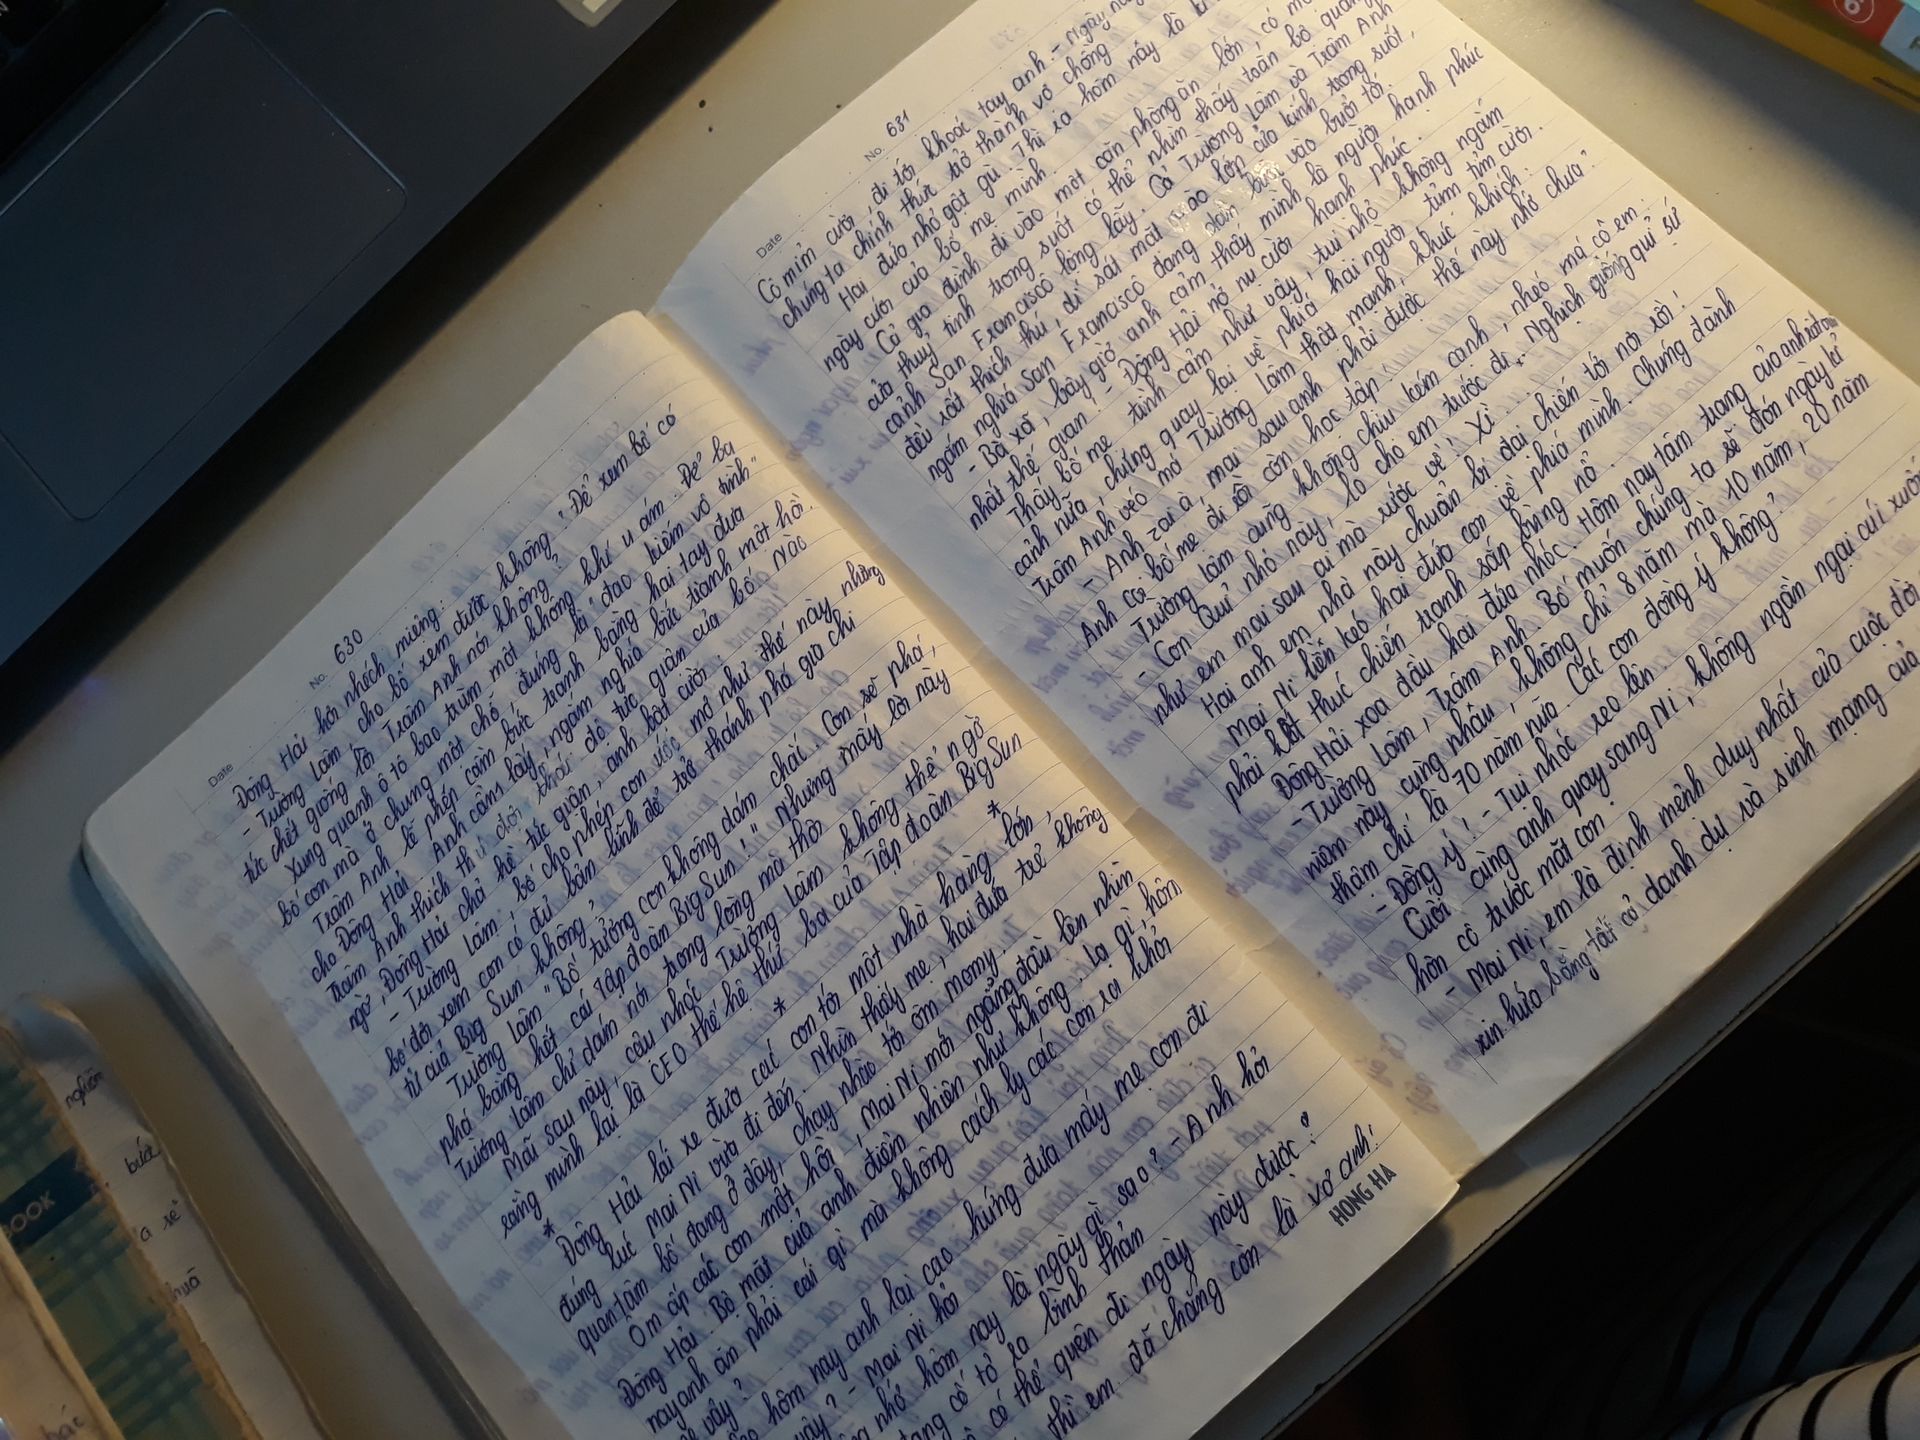 No. 630
Date
Đông Hải hơi nhếch miệng:
- Trường Lâm, cho bố xem được không? Để xem bố có
tức chết giống lời Trâm Anh nói không?
Xung quanh ô tô bao trùm một không khí u ám. Để ba
bố con mà ở chung một chỗ, đúng là "đao kiếm vô tình"
Trâm Anh lễ phép cầm bức tranh bằng hai tay đưa
cho Đông Hải. Anh cầm lấy, ngắm nghía bức tranh một hồi.
Trâm Anh thích thú đợi thái độ tức giận của bố. Nào
ngờ, Đông Hải chả hề tức giận, anh bật cười:
- Trường Lâm, bố cho phép con ước mơ như thế này nhưng
bố đợi xem con có đủ bản lĩnh để trở thành phá gia chi
tử của Big Sun không?
Trường Lâm "Bố tưởng con không dám chắc. Con sẽ phá,
phá bằng hết cái Tập đoàn Big Sun!" Nhưng mấy lời này
Trường Lâm chỉ dám nói trong lòng mà thôi.
Mãi sau này, cậu nhóc Trường Lâm không thể ngờ
rằng mình lại là CEO thế hệ thứ ba của Tập đoàn Big Sun
* * *
Đông Hải lái xe đưa các con tới một nhà hàng lớn,
đúng lúc Mai Ni vừa đi đến. Nhìn thấy mẹ, hai đứa trẻ không
quan tâm bố đang ở đây, chạy nhào tới ôm momy.
Ôm ấp các con một hồi, Mai Ni mới ngẩng đầu lên nhìn
Đông Hải. Bộ mặt của anh điềm nhiên như không, lạ gì, hôm
nay anh ăn phải cái gì mà không cách ly các con ra khỏi
vậy?
hôm nay anh lại cao hứng đưa mấy mẹ con đi
vậy? - Mai Ni hỏi
nhớ hôm nay là ngày gì sao? - Anh hỏi
đang cố tỏ ra bình thản
có thể quên đi ngày này được?
thì em đã chẳng còn là vợ anh!
HONG HA
No. 631
Date
Cô mỉm cười, đi tới khoác tay anh - Ngày này
chúng ta chính thức trở thành vợ chồng
Hai đứa nhỏ gật gù. Thì ra hôm nay là
ngày cưới của bố mẹ mình.
Cả gia đình đi vào một căn phòng ăn lớn, có
cửa thuỷ tinh trong suốt có thể nhìn thấy toàn bộ quang
cảnh San Francisco lộng lẫy. Cả Trường Lâm và Trâm Anh
đều rất thích thú, đi sát mặt vào lớp cửa kính trong suốt,
ngắm nghía San Francisco đang dần bước vào buổi tối.
- Bà xã, bây giờ anh cảm thấy mình là người hạnh phúc
nhất thế gian! - Đông Hải nở nụ cười hạnh phúc.
Thấy bố mẹ tình cảm như vậy, tụi nhỏ không ngắm
cảnh nữa, chúng quay lại về phía hai người tủm tỉm cười.
Trâm Anh véo má Trường Lâm thật mạnh, khúc khích:
- Anh zai à, mai sau anh phải được thế này nhớ chưa?
Anh coi bố mẹ đi rồi còn học tập!
Trường Lâm cũng không chịu kém cạnh, nhéo má cô em:
- Con quỉ nhỏ này, lo cho em trước đi. Nghịch giống quỉ sứ
như em mai sau ai mà rước về! Xí...
Hai anh em nhà này chuẩn bị đại chiến tới nơi rồi!
Mai Ni liền kéo hai đứa con về phía mình. Chúng đành
phải kết thúc chiến tranh sắp bùng nổ.
Đông Hải xoa đầu hai đứa nhóc. Hôm nay tâm trạng của anh
- Trường Lâm, Trâm Anh. Bố muốn chúng ta sẽ đón ngày kỉ
niệm này cùng nhau, không chỉ 8 năm mà 10 năm, 20 năm
thậm chí là 70 năm nữa. Các con đồng ý không?
- Đồng ý! - Tụi nhóc reo lên
Cuối cùng anh quay sang Ni, không ngần ngại cúi xuống
hôn cô trước mắt con:
- Mai Ni, em là định mệnh duy nhất của cuộc đời
xin hứa bằng tất cả danh dự và sinh mạng của
BOOK
nghiền
bức